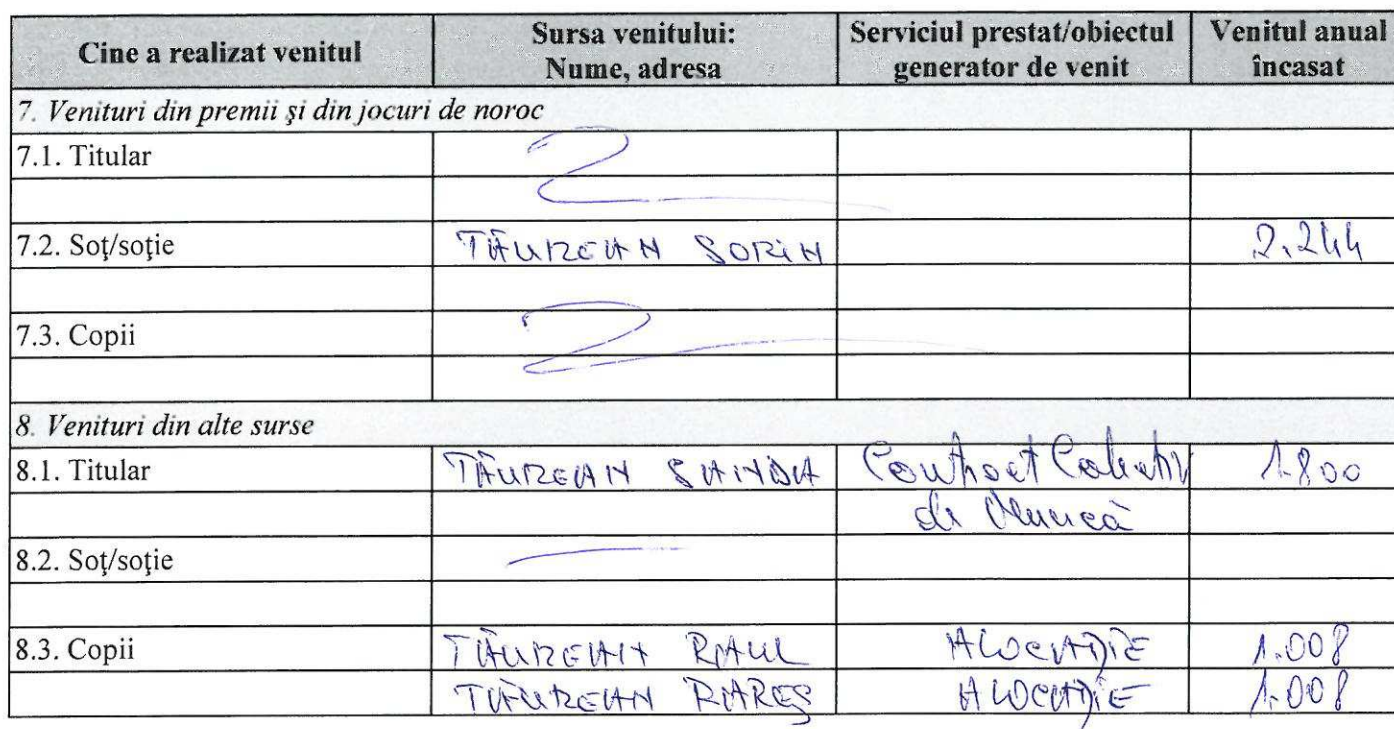 Cine a realizat venitul Sursa venitului: Nume, adresa Serviciul prestat/obiectul generator de venit Venitul anual încasat
7. Venituri din premii şi din jocuri de noroc
7.1. Titular
7.2. Soţ/soţie TĂUREAN SORIN 2.244
7.3. Copii
8. Venituri din alte surse
8.1. Titular TĂUREAN SANDA Contract Colectiv 1.800
de Muncă
8.2. Soţ/soţie
8.3. Copii TĂUREAN RAUL ALOCAŢIE 1.008
TĂUREAN RAREŞ ALOCAŢIE 1.008